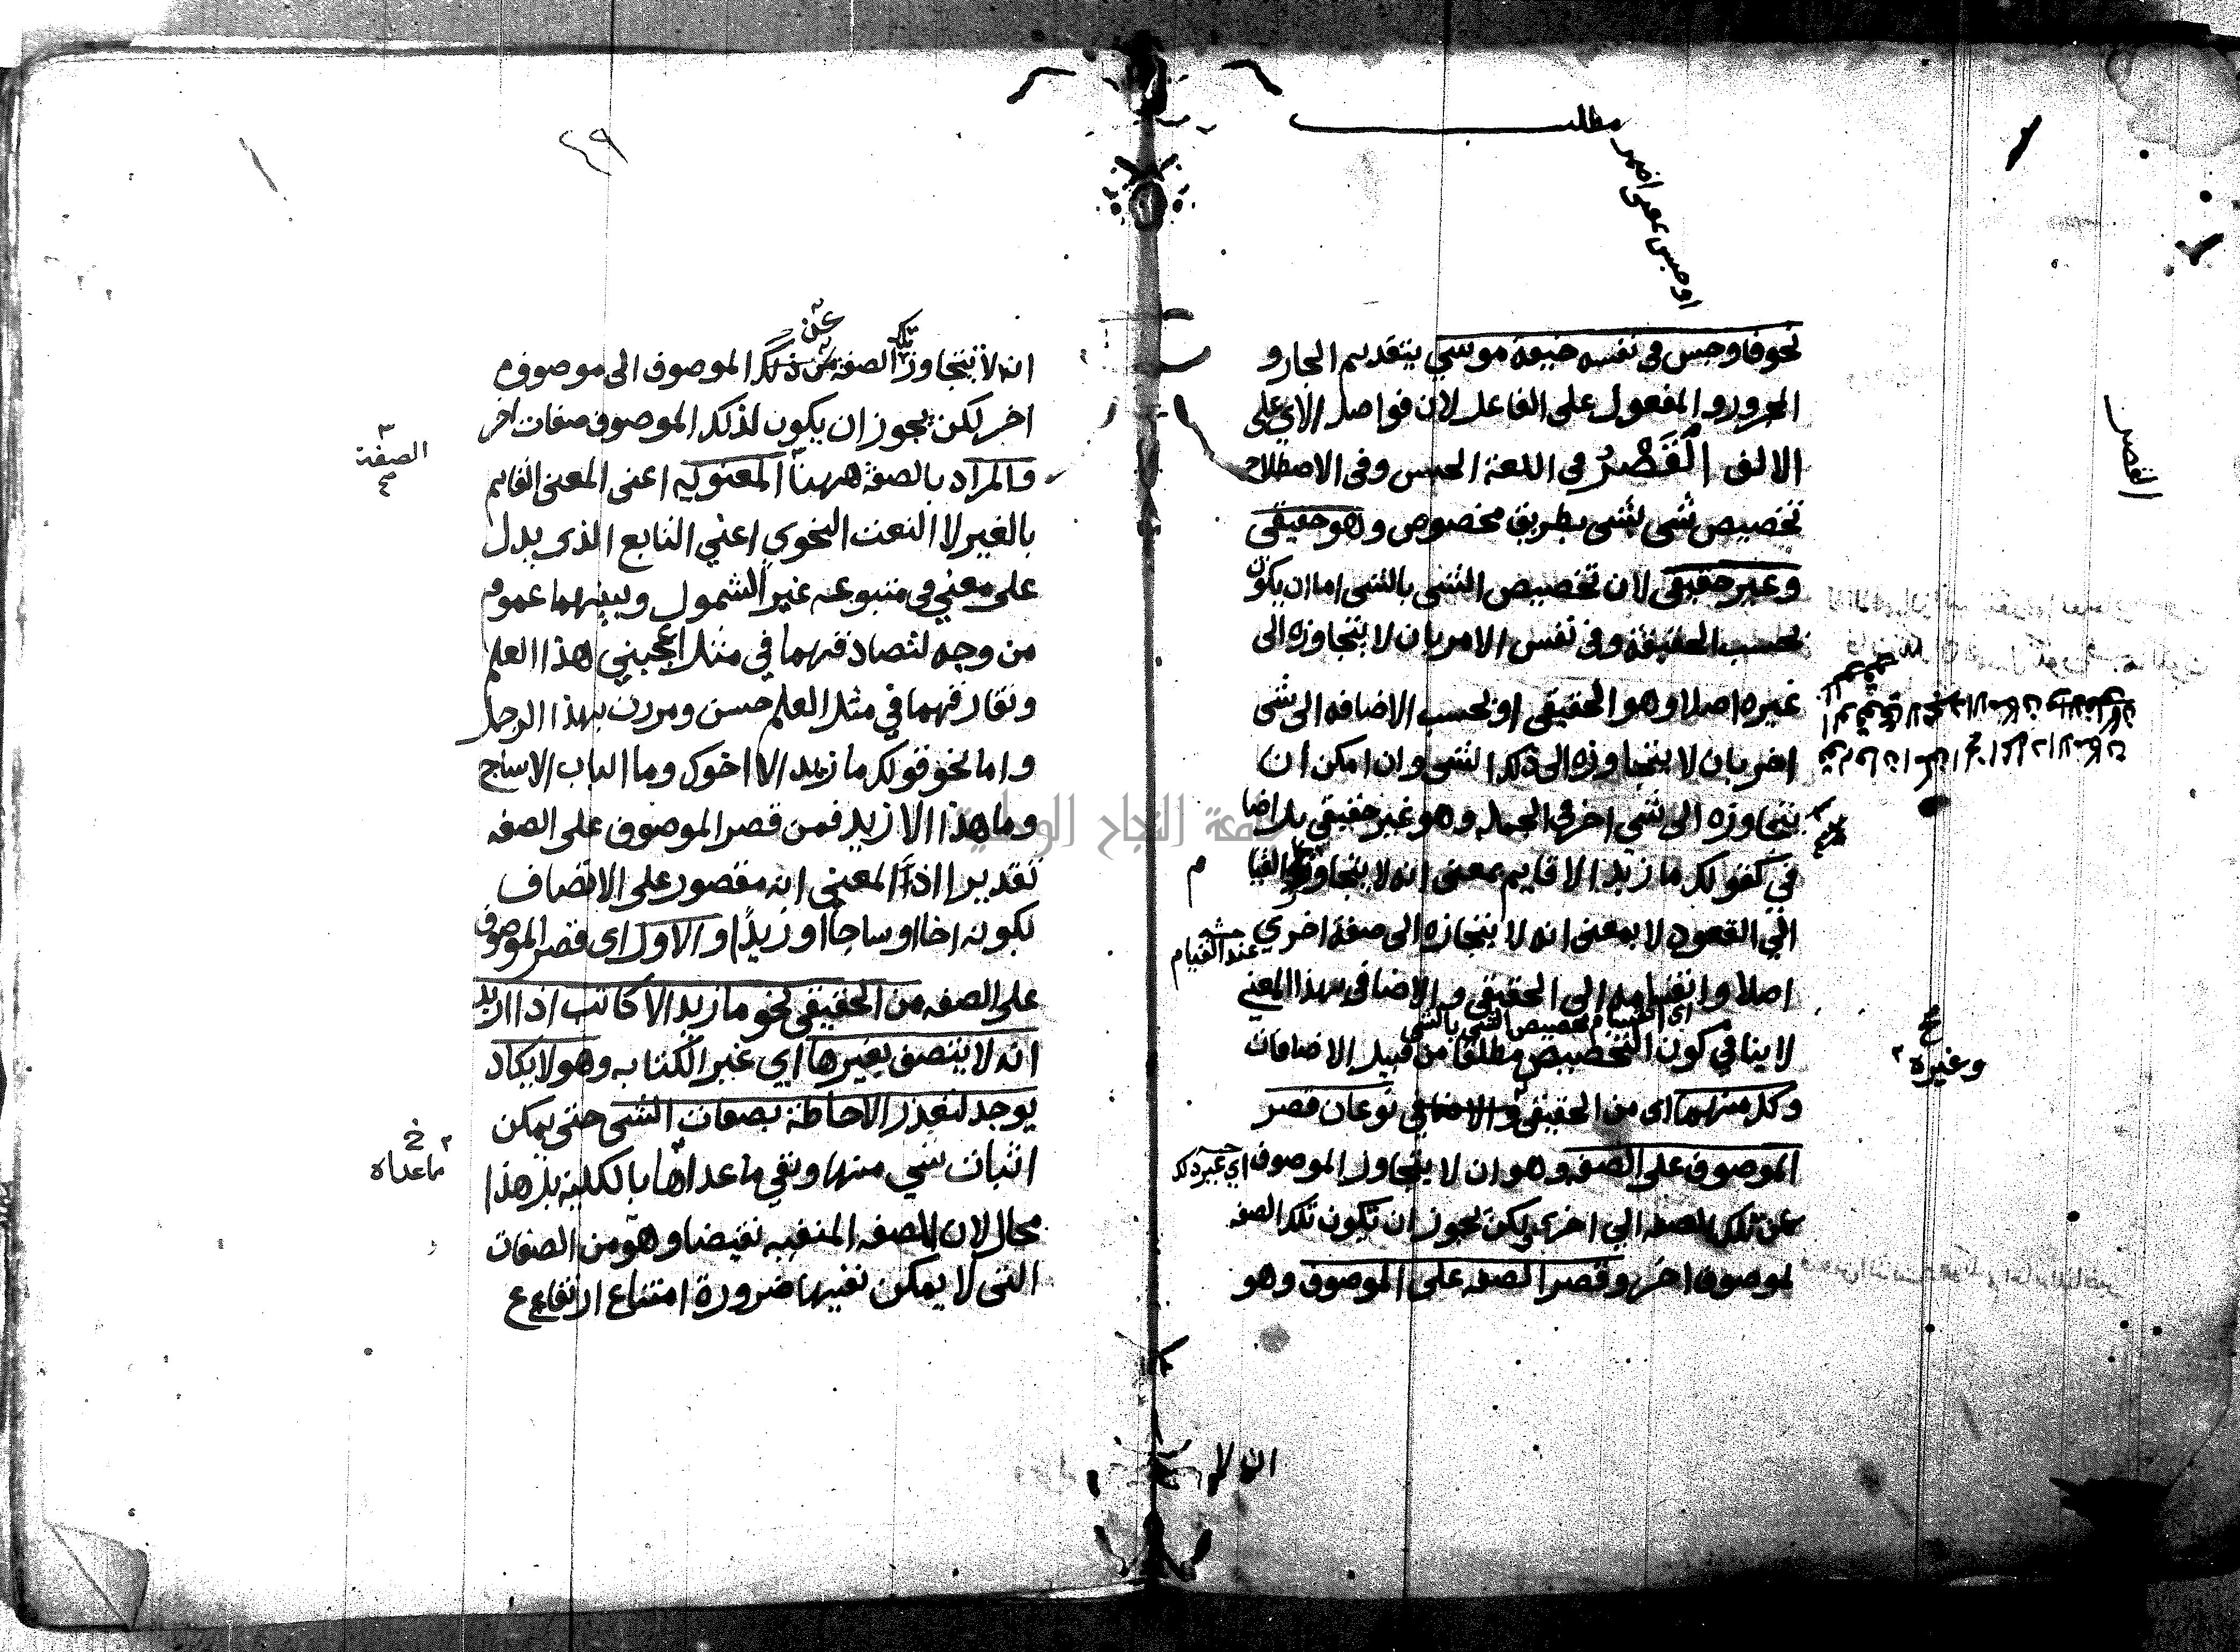 مطلب
اوجس بمعنى اضمر
نحو فاوجس في نفسه خيفة موسى بتقديم الجار و
المجرور والمفعول على الفاعل لان فواصل الاي على
الالف القَصْرُ في اللغة الحبس وفي الاصطلاح
القصر
تخصيص شي بشي بطريق مخصوص وهو حقيقي
وغير حقيقي لان تخصيص الشي بالشي اما ان يكون
بحسب الحقيقة وفي نفس الامر بان لا يتجاوزه الى
غيره اصلا وهو الحقيقي او بحسب الاضافه الى شي
اخر بان لا يتجاوزه الى ذلك الشي وان امكن ان
يتجاوزه الى شي اخر في الجمله وهو غير حقيقي بل اضا
في كقولك ما زيد الا قايم بمعنى انه لا يتجاوز القيا
م
الي القعود لا بمعنى انه لا يتجازه الى صفة اخري
عند القيام
اصلا وانقسامه الى الحقيقي والاضافي بهذا المعني
اي انقسام تخصيص الشي بالشي
لا ينافي كون التخصيص مطلقا من قبيل الاضافات
وغيره
وكل منهما اي من الحقيقي والاضافي نوعان قصر
الموصوف على الصفه وهو ان لا يتجاوز الموصوف
اي غير ذلك
عن تلك الصفه الي اخرى لكن يجوز ان تكون تلك الصفه
لموصوف اخر وقصر الصفه على الموصوف وهو
ان لا
٤٩
انه لا يتجاوز تلك الصفه عن ذلك الموصوف الى موصوف
اخر لكن يجوز ان يكون لذلك الموصوف صفات اخر
والمراد بالصفة ههنا المعنويه اعنى المعنى القايم
الصفة
بالغير لا النعت النحوي اعني التابع الذي يدل
على معني في متبوعه غير الشمول وبينهما عموم
من وجه لتصادقهما في مثل اعجبني هذا العلم
وتفارقهما في مثل العلم حسن ومررت بهذا الرجل
واما نحو قولك ما زيد الا اخوك وما الباب الا ساج
وما هذا الا زيد فمن قصر الموصوف على الصفه
تقديرا اذ المعنى انه مقصور على الاتصاف
بكونه اخا او ساجا او زيدًا والاول اي قصر الموصوف
على الصفه من الحقيقي نحو ما زيد الا كاتب اذا اريد
انه لا يتصف بغيرها اي غير الكتابه وهو لا يكاد
يوجد لتعذر الاحاطة بصفات الشي حتى يمكن
اثبات شي منها ونفي ما عداها بالكلية بل هذا
ما عداه
محال لان للصفه المنفيه نقيضا وهو من الصفات
التى لا يمكن نفيها ضرورة امتناع ارتفاع